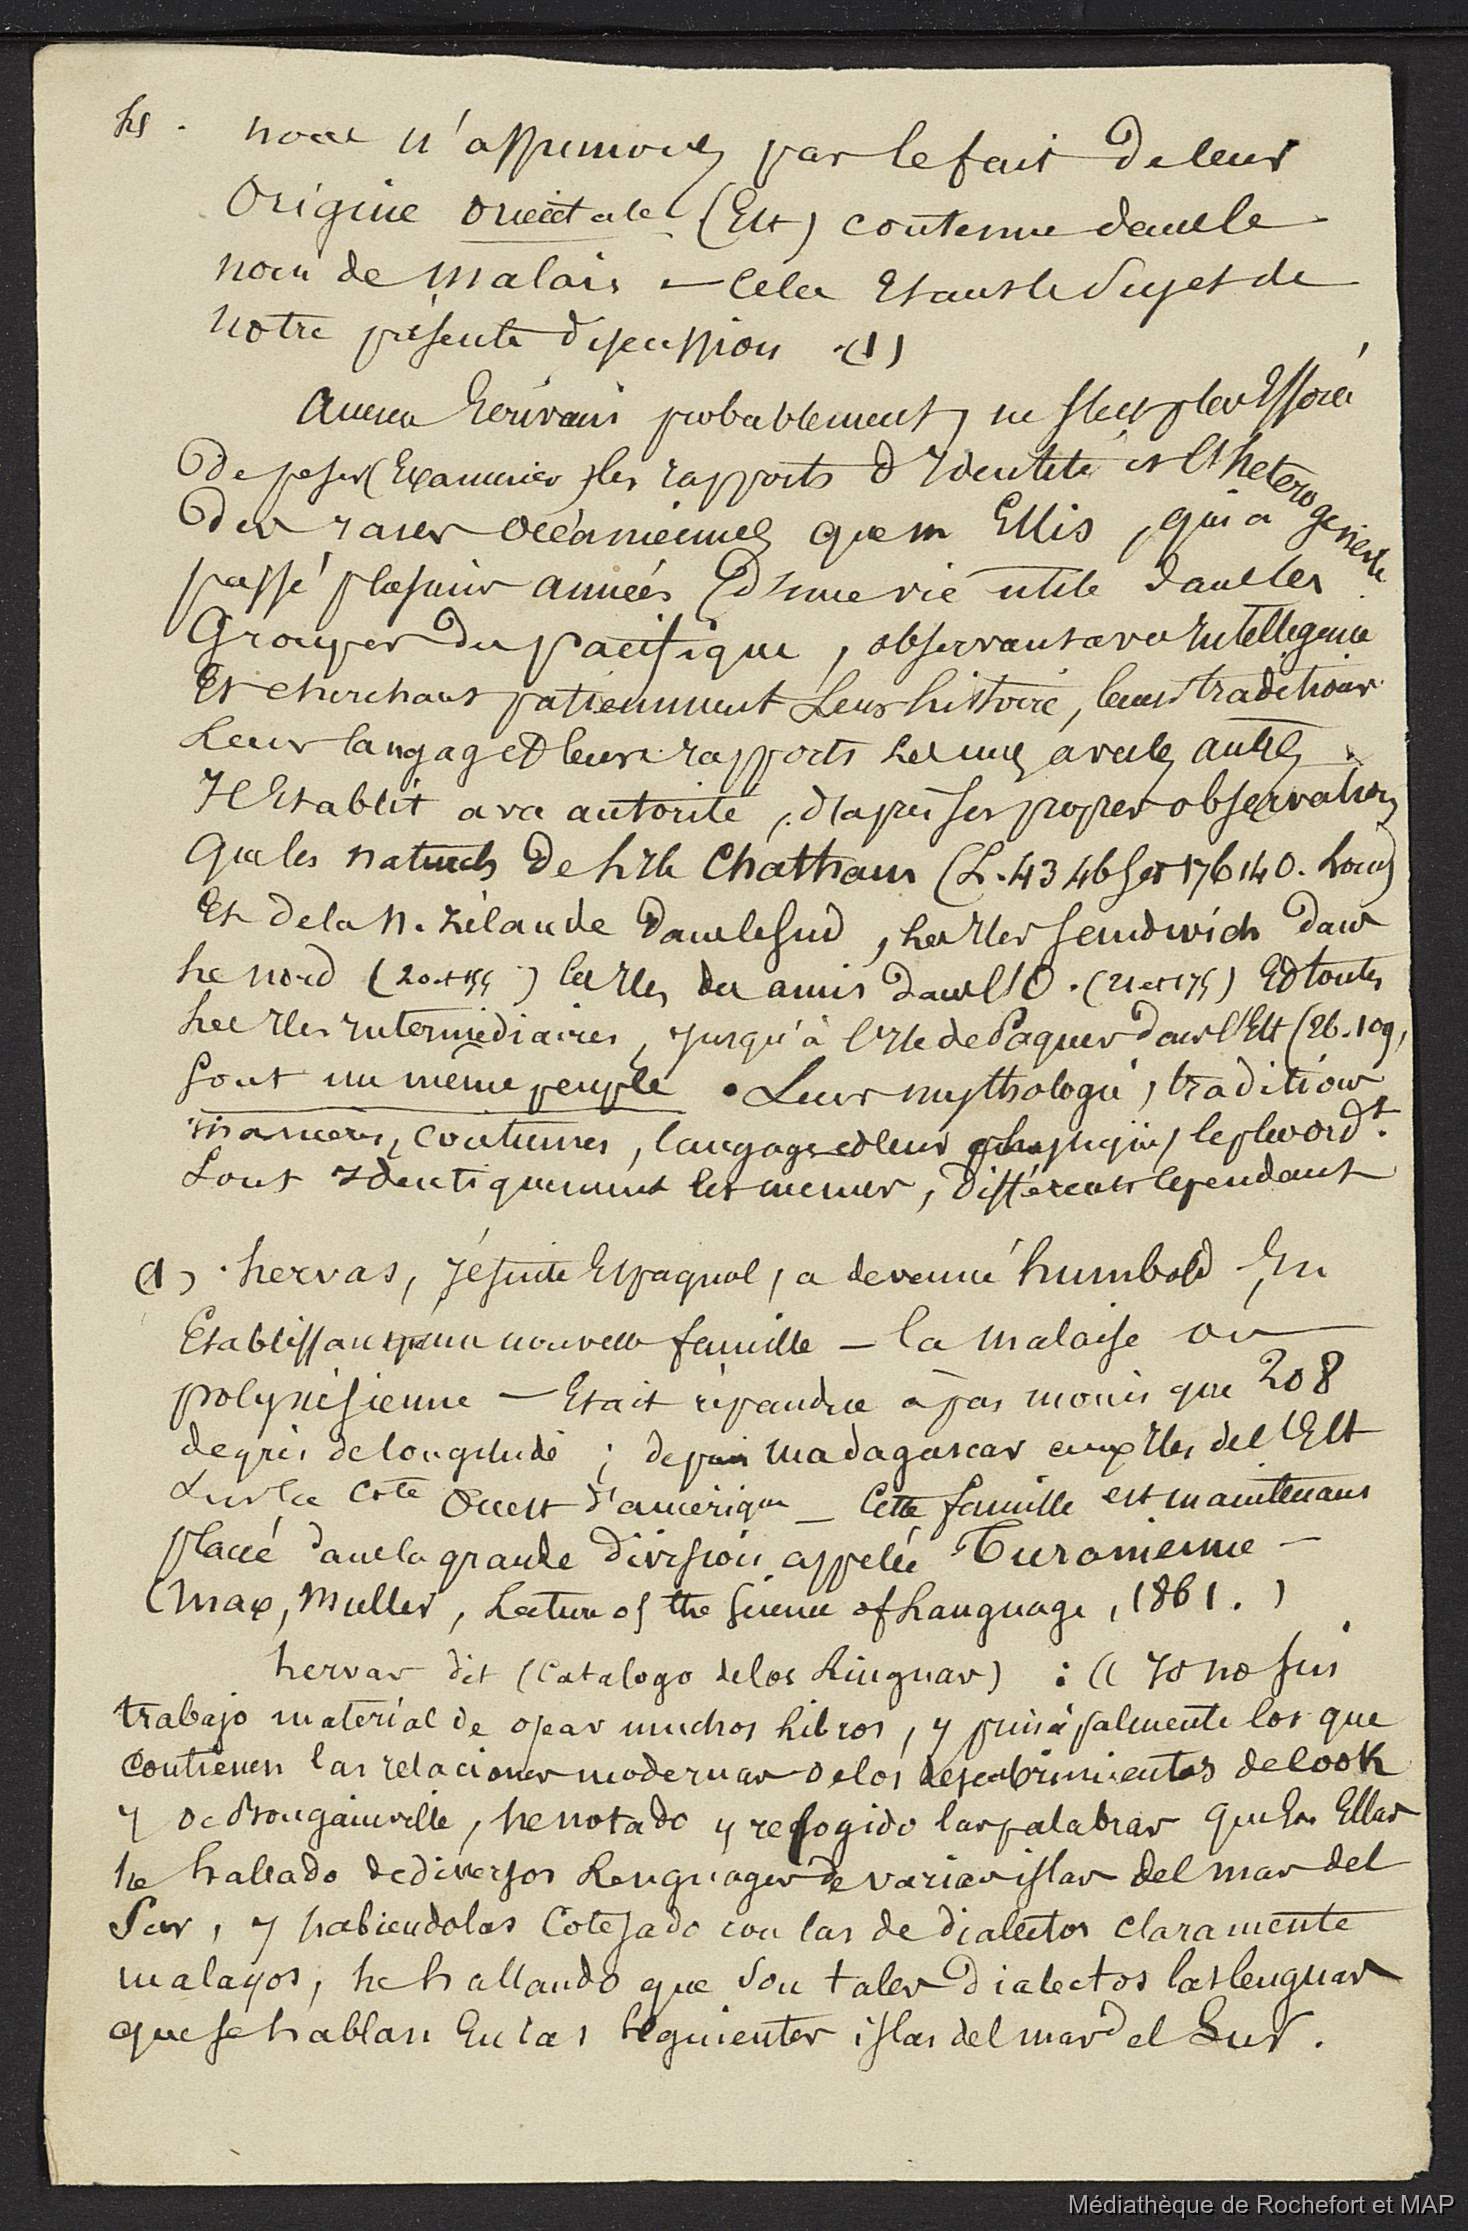 nous n'assumons par le fait de leur
Origine orientale (Est) contenue dans le
nom de Malais — Cela Etant le sujet de
notre présente discussion (1)
Aucun Ecrivain probablement, ne s'est plus Efforcé
De peser (Examiner) les rapports d'Identité et d'hétérogénéité
Des races océaniennes que m Ellis, qui a
passé plusieurs années d'une vie utile dans les
Groupes du pacifique, observant avec Intelligence
Et cherchant patiemment Leur histoire, leurs traditions
Leur langage Et leurs rapports les uns avec les autres.
Il Etablit avec autorité, d'après ses propres observations
Que les naturels De l'Ile Chatham (L. 43 46 Set 176 140. Lond)
Et de la N. Zélande Dans le Sud, les Iles Sandwich Dans
le nord (20 et 155) les Iles des amis Dans l'O. (21 et 175) Et toutes
les Iles Intermédiaires, Jusqu'à l'Ile de Paques Dans l'Est (26. 109,
sont un même peuple. Leur mythologie, traditions
manières, coutumes, langage et leur physique, le plus ordt.
Sont Identiquement les mêmes, Différents cependant
(1) hervas, Jésuite Espagnol, a devancé humbold En
Etablissant qu'une nouvelle famille — la malaise ou
polynésienne — Etait répandue à pas moins que 208
degrés de longitude ; depuis madagascar aux Iles de l'Est
Sur la Cote Ouest d'amérique — Cette famille est maintenant
placée dans la grande Division appelée Turanienne —
(max, muller, Lecture of the Science of Language, 1861.)
hervas dit (Catalogo de los Linguas) : (( Yo no sin
trabajo material de ojear muchos Libros, y principalmente los que
Contienen las relaciones modernas de los descobrimientos de Cook
y de Bougainville, he notado y recogido las palabras que En Ellas
he hallado de diversos Lenguages de varias islas del mar del
Sur, y habiendolas Cotejado con las de dialectos claramente
malayos, he hallando que Son tales Dialectos las lenguas
que se hablan En las Seguientes islas del mar del Sur.
Médiathèque de Rochefort et MAP